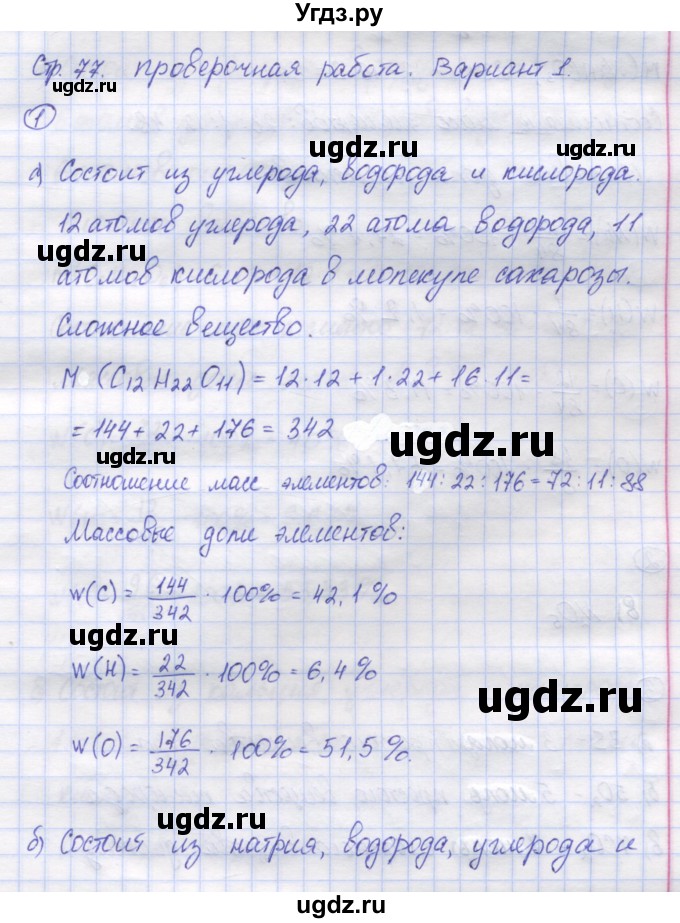 Угдз.ру
Стр. 77. проверочная работа. Вариант 1.
ugdz.ru
1
ugdz.ru
а) Состоит из углерода, водорода и кислорода.
12 атомов углерода, 22 атома водорода, 11
ugdz.ru
атомов кислорода в молекуле сахарозы.
Сложное вещество.
ugdz.ru
M (C12H22O11) = 12·12 + 1·22 + 16·11 =
= 144 + 22 + 176 = 342
ugdz.ru
ugdz.ru
Соотношение масс элементов: 144:22:176 = 72:11:88
Массовые доли элементов:
ugdz.ru
w(C) = 144/342 · 100% = 42,1%
ugdz.ru
w(H) = 22/342 · 100% = 6,4%
ugdz.ru
w(O) = 176/342 · 100% = 51,5%.
ugdz.ru
б) Состоит из натрия, водорода, углерода и
ugdz.ru